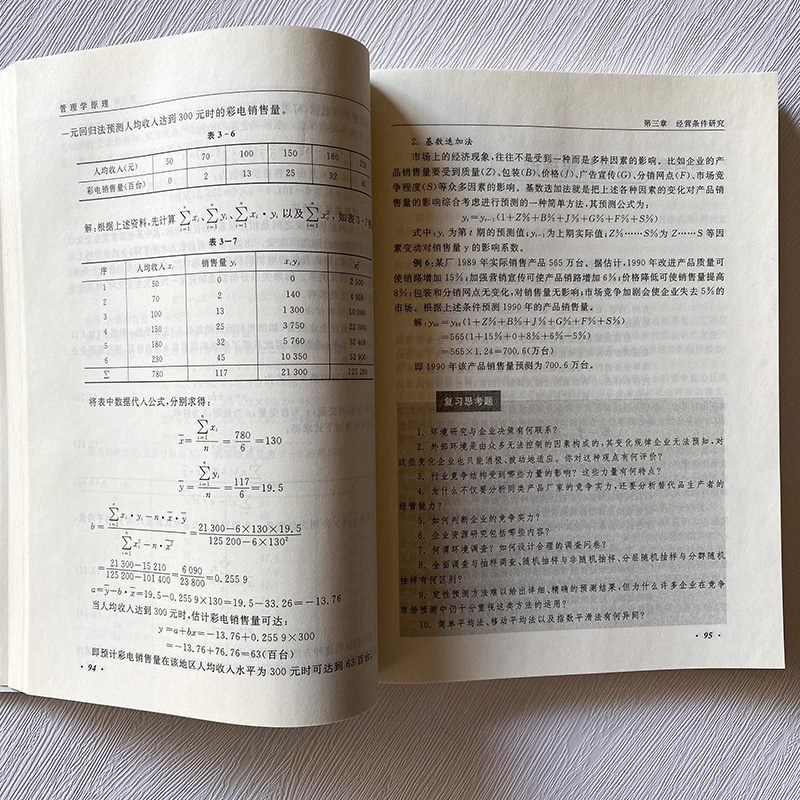 管理学原理
一元回归法预测人均收入达到300元时的彩电销售量。
表3-6
人均收入(元) 50 70 100 150 180 230
彩电销售量(百台) 0 2 13 25 32
解:根据上述资料,先计算 ∑xᵢ、∑yᵢ、∑xᵢ·yᵢ 以及 ∑xᵢ², 如表3-7
表3-7
序 人均收入 xᵢ 销售量 yᵢ xᵢyᵢ xᵢ²
1 50 0 0 2 500
2 70 2 140 4 900
3 100 13 1 300 10 000
4 150 25 3 750 22 500
5 180 32 5 760 32 400
6 230 45 10 350 52 900
∑ 780 117 21 300 125 200
将表中数据代入公式,分别求得:
x̄=∑xᵢ/n=780/6=130
ȳ=∑yᵢ/n=117/6=19.5
b=(∑xᵢ·yᵢ-n·x̄·ȳ)/(∑xᵢ²-n·x̄²)=(21 300-6×130×19.5)/(125 200-6×130²)
=(21 300-15 210)/(125 200-101 400)=6 090/23 800=0.255 9
a=ȳ-b·x̄=19.5-0.255 9×130=19.5-33.26=-13.76
当人均收入达到300元时,估计彩电销售量可达:
y=a+bx=-13.76+0.255 9×300
=-13.76+76.76=63(百台)
即预计彩电销售量在该地区人均收入水平为300元时可达到63百台。
· 94 ·
第三章 经营条件研究
2. 基数迭加法
市场上的经济现象,往往不是受到一种而是多种因素的影响。比如企业的产
品销售量要受到质量(Z)、包装(B)、价格(J)、广告宣传(G)、分销网点(F)、市场竞
争程度(S)等众多因素的影响。基数迭加法就是把上述各种因素的变化对产品销
售量的影响综合考虑进行预测的一种简单方法,其预测公式为:
yₜ=yₜ₋₁(1+Z%+B%+J%+G%+F%+S%)
式中:yₜ为第t期的预测值;yₜ₋₁为上期实际值;Z%……S%为Z……S等因
素变动对销售量y的影响系数。
例6:某厂1989年实际销售产品565万台。据估计,1990年改进产品质量可
使销路增加15%;加强营销宣传可使产品销路增加6%;价格降低可使销售量提高
8%;包装和分销网点无变化,对销售量无影响;市场竞争加剧会使企业失去5%的
市场。根据上述条件预测1990年的产品销售量。
解:y₉₀=y₈₉(1+Z%+B%+J%+G%+F%+S%)
=565(1+15%+0+8%+6%-5%)
=565×1.24=700.6(万台)
即1990年该产品销售量预测为700.6万台。
复习思考题
1. 环境研究与企业决策有何联系?
2. 外部环境是由众多无法控制的因素构成的,其变化规律企业无法预知,对
这些变化企业也只能消极、被动地适应。你对这种观点有何评价?
3. 行业竞争结构受到哪些力量的影响?这些力量有何特点?
4. 为什么不仅要分析同类产品厂家的竞争实力,还要分析替代品生产者的
经营能力?
5. 如何判断企业的竞争实力?
6. 企业资源研究包括哪些内容?
7. 何谓环境调查?如何设计合理的调查问卷?
8. 全面调查与抽样调查、随机抽样与非随机抽样、分层随机抽样与分群随机
抽样有何区别?
9. 定性预测方法难以给出详细、精确的预测结果,但为什么许多企业在竞争
市场预测中仍十分重视这类方法的运用?
10. 简单平均法、移动平均法以及指数平滑法有何异同?
· 95 ·